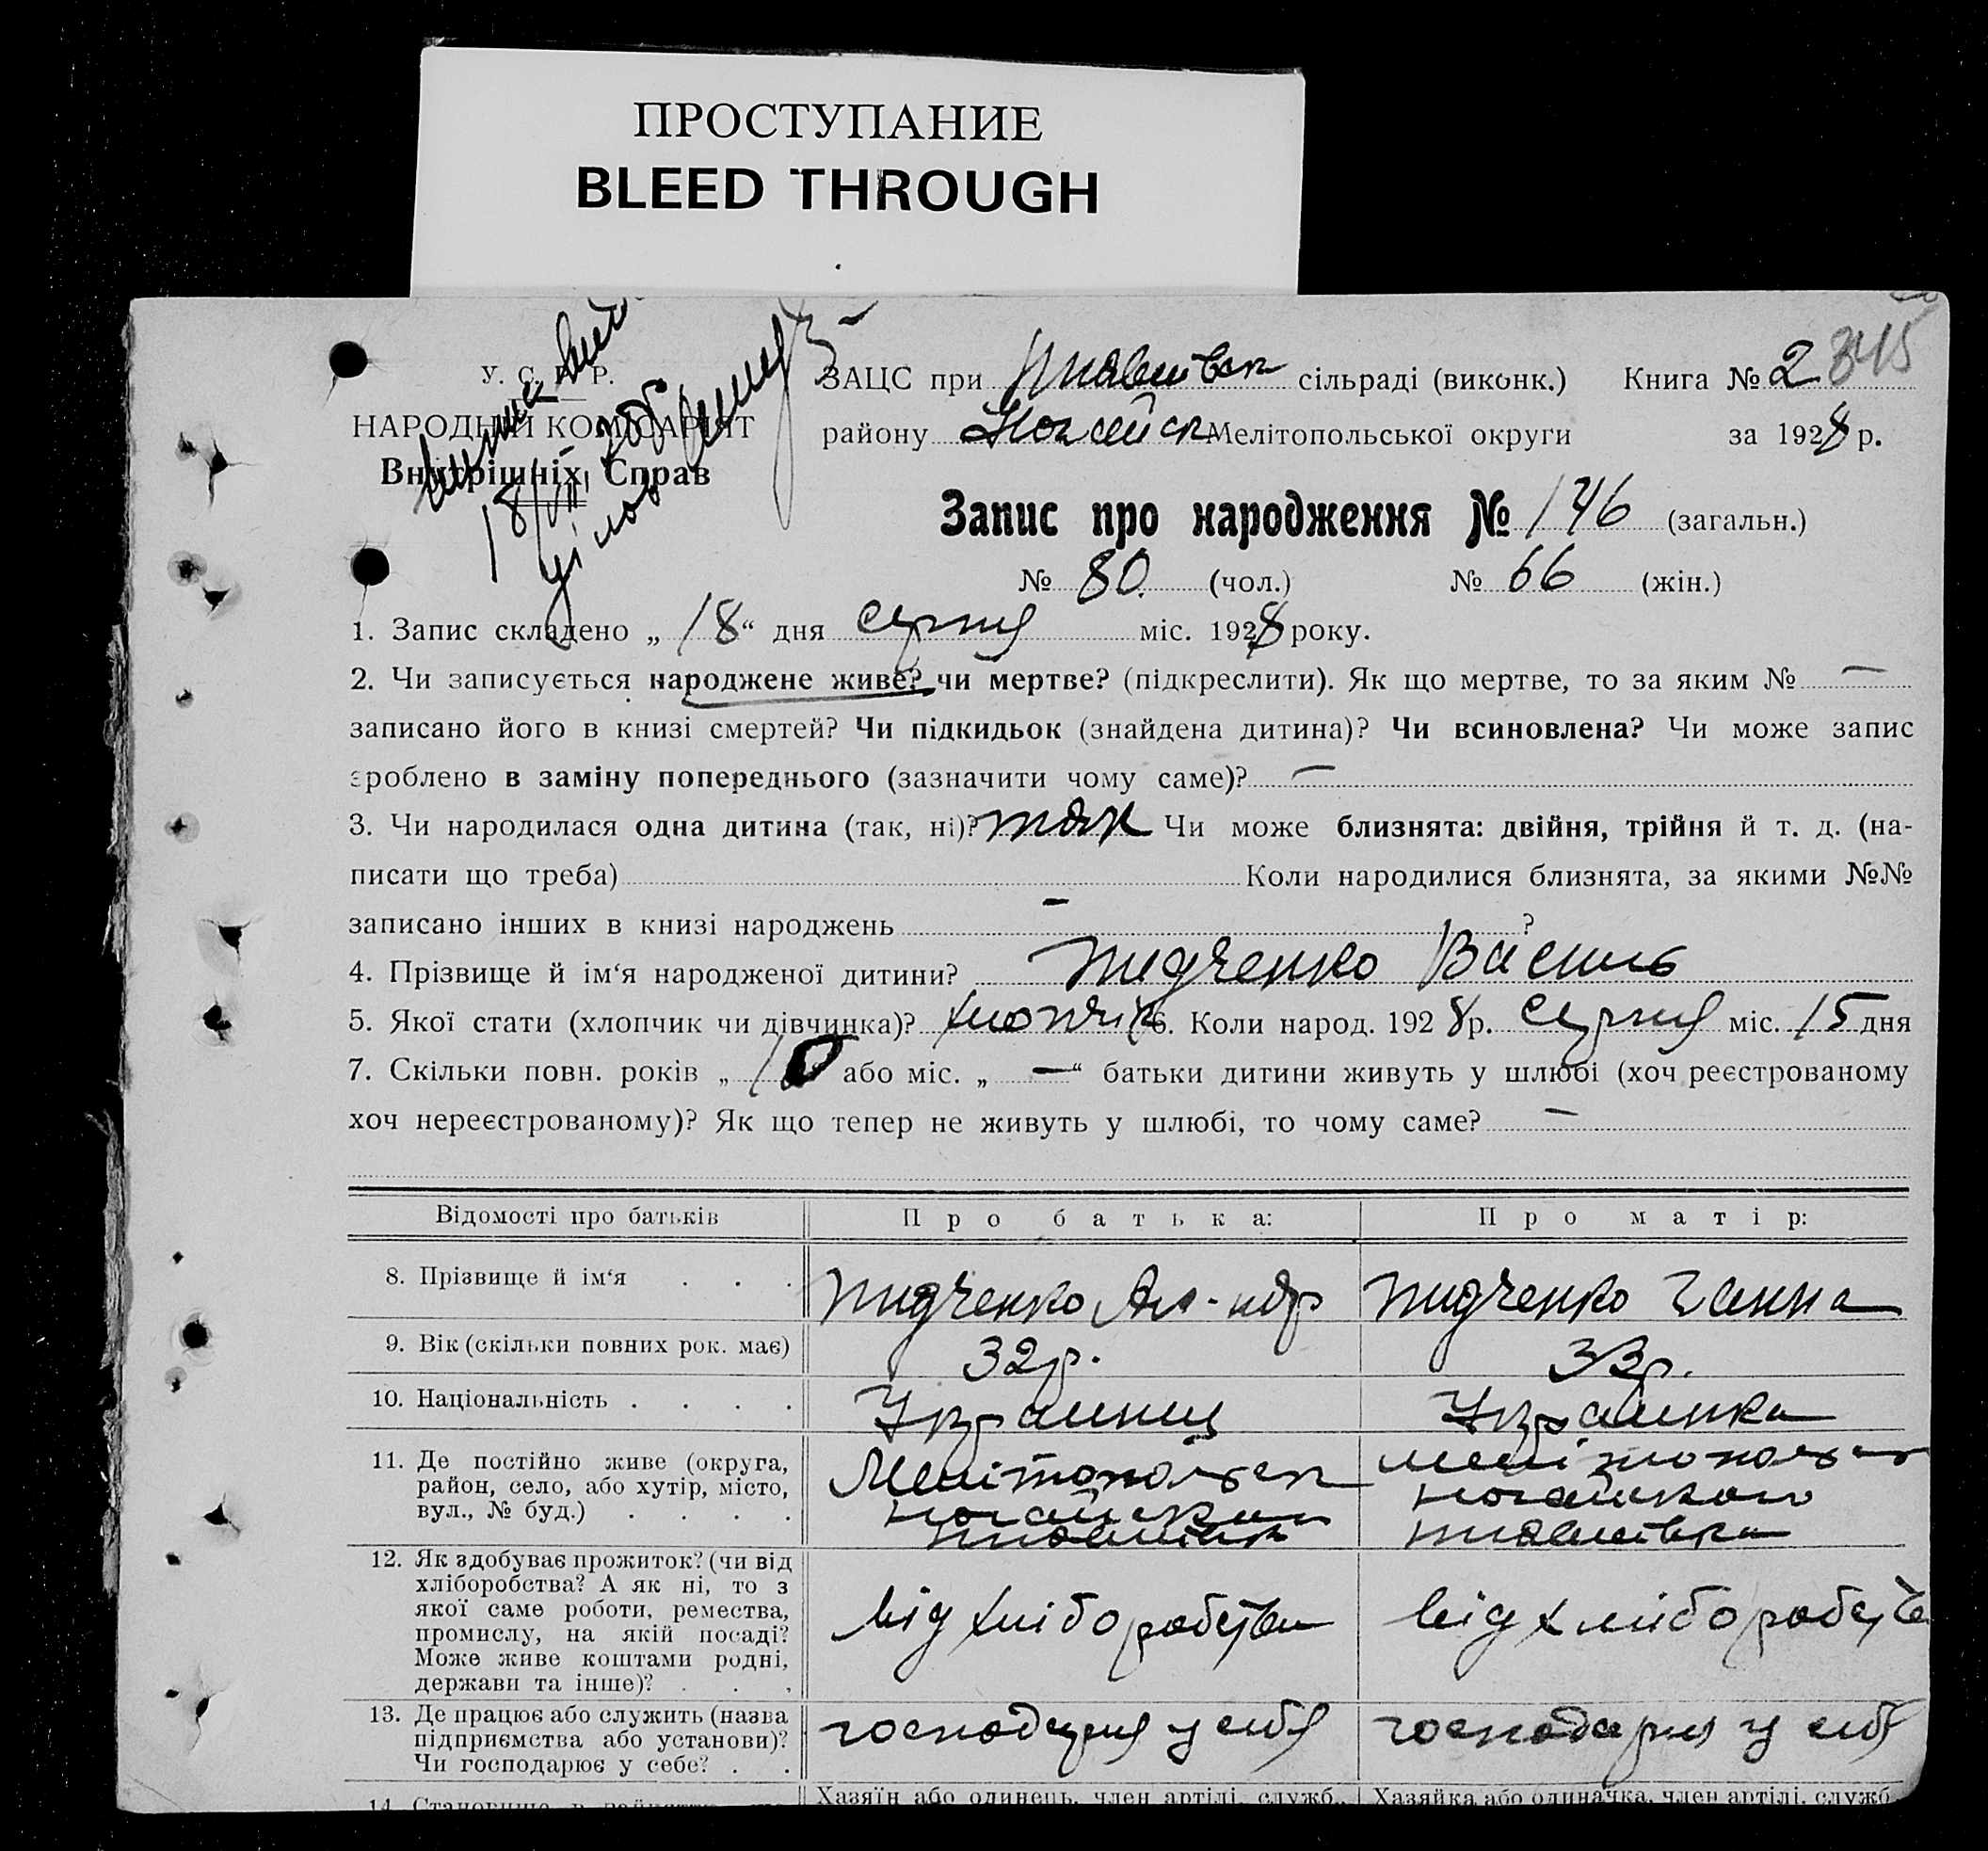 ПРОСТУПАНИЕ
BLEED THROUGH
У. С. Р. Р.
НАРОДНИЙ КОМІСАРІЯТ
Внутрішніх Справ
18/VIII
ЗАЦС при сільраді (виконк.) Книга № 2 345
району Ногайськ Мелітопольської округи за 1928 р.
Запис про народження № 146 (загальн.)
№ 80. (чол.) № 66 (жін.)
1. Запис складено „ 18 “ дня серпня міс. 1928 року.
2. Чи записується народжене живе? чи мертве? (підкреслити). Як що мертве, то за яким № —
записано його в книзі смертей? Чи підкидьок (знайдена дитина)? Чи всиновлена? Чи може запис
зроблено в заміну попереднього (зазначити чому саме)? —
3. Чи народилася одна дитина (так, ні)? так Чи може близнята: двійня, трійня й т. д. (на-
писати що треба) Коли народилися близнята, за якими №№
записано інших в книзі народжень — ?
4. Прізвище й ім‘я народженої дитини? Василь
5. Якої стати (хлопчик чи дівчинка)? хлопчик 6. Коли народ. 1928 р. серпня міс. 15 дня
7. Скільки повн. років „ 10 “ або міс. „ — “ батьки дитини живуть у шлюбі (хоч реєстрованому
хоч нереєстрованому)? Як що тепер не живуть у шлюбі, то чому саме? —
Відомості про батьків Про батька: Про матір:
8. Прізвище й ім‘я . . . Ал-ндр Ганна
9. Вік (скільки повних рок. має) 32 р. 33 р.
10. Національність . . . . Українец Українка
11. Де постійно живе (округа, Мелітопольськ Мелітопольськ
район, село, або хутір, місто,
вул., № буд.) . . . .
12. Як здобуває прожиток? (чи від
хліборобства? А як ні, то з
якої саме роботи, ремества, від хліборобства від хліборобств
промислу, на якій посаді?
Може живе коштами родні,
держави та інше)? . . .
13. Де працює або служить (назва господаря у себя господаря у себя
підприємства або установи)?
Чи господарює у себе? . .
Хазяїн або одинець, член артілі, служб., Хазяйка або одиначка, член артілі, служб.